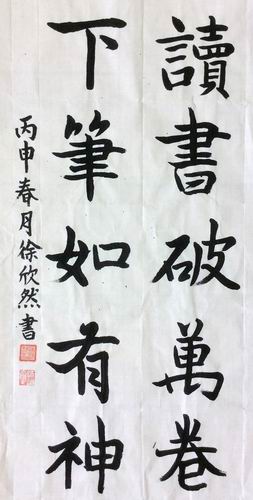 讀書破萬卷
下筆如有神
丙申春月徐欣然書